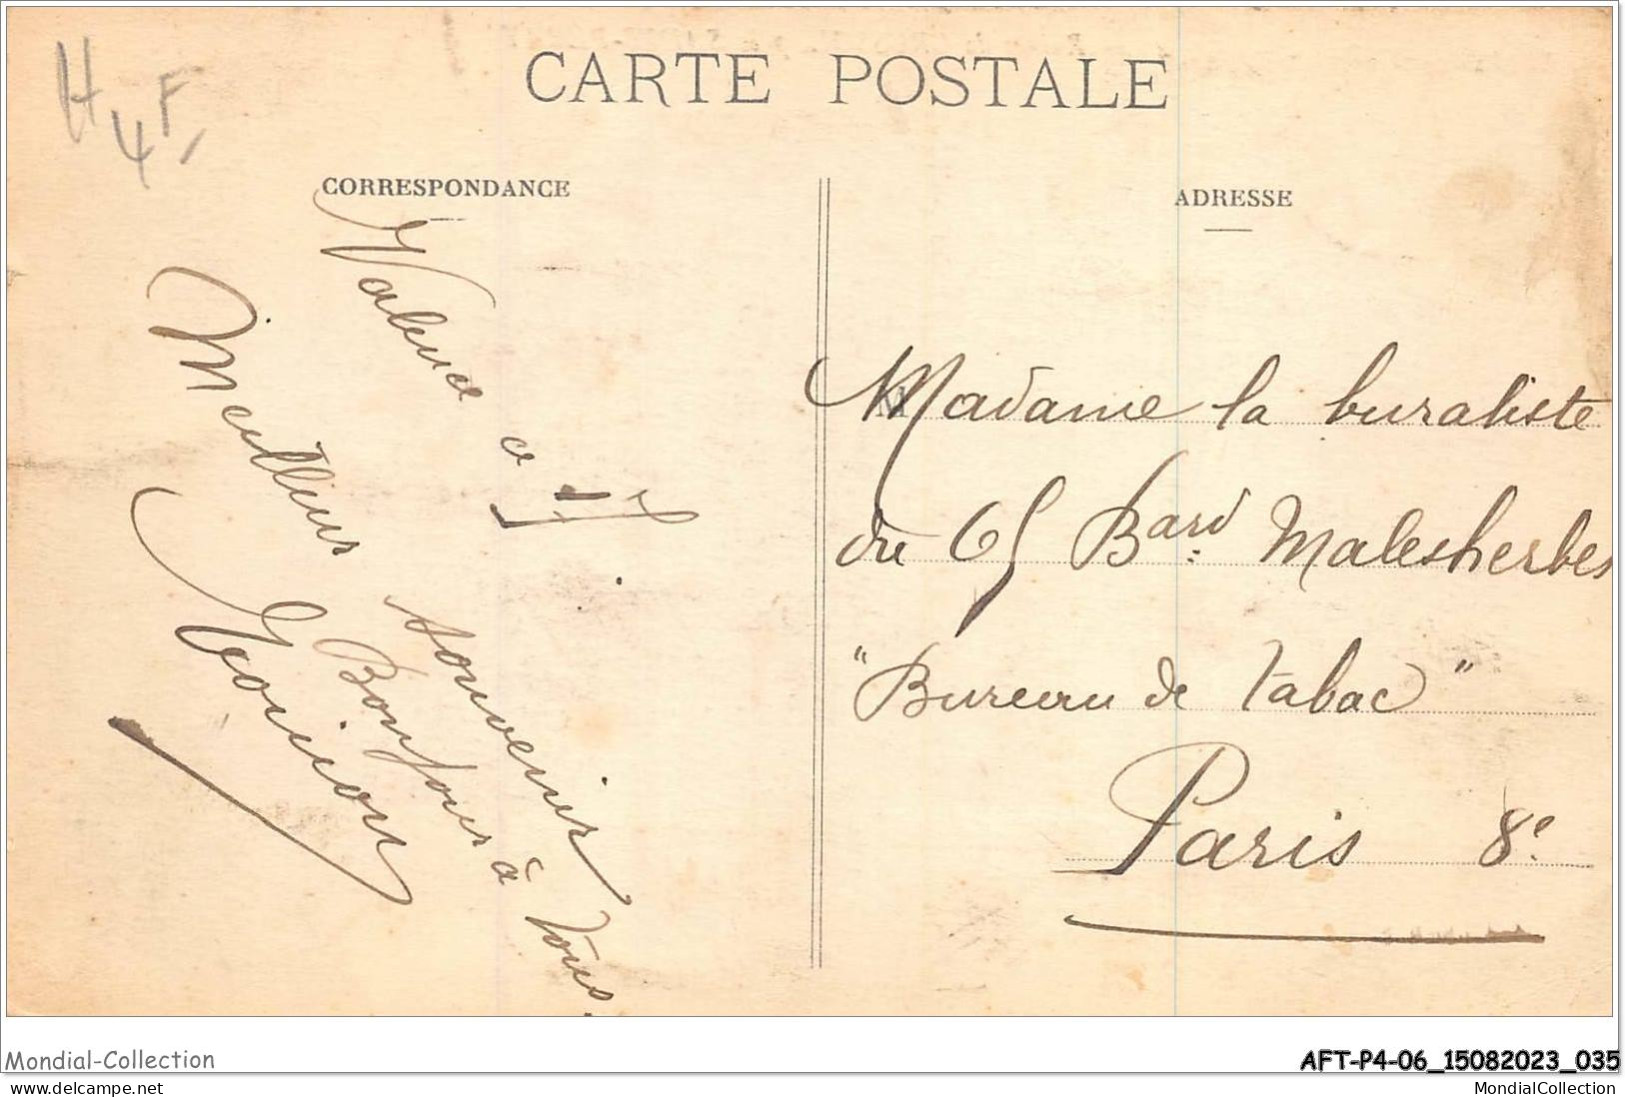 H 4 F
CARTE POSTALE
CORRESPONDANCE
ADRESSE
Valence ce 17.
Meilleur souvenir
Bonjour à tous.
Madame la buraliste
du 65 Bard. Malesherbes
"Bureau de Tabac"
Paris 8e.
Mondial-Collection
AFT-P4-06_15082023_035
www.delcampe.net
MondialCollection